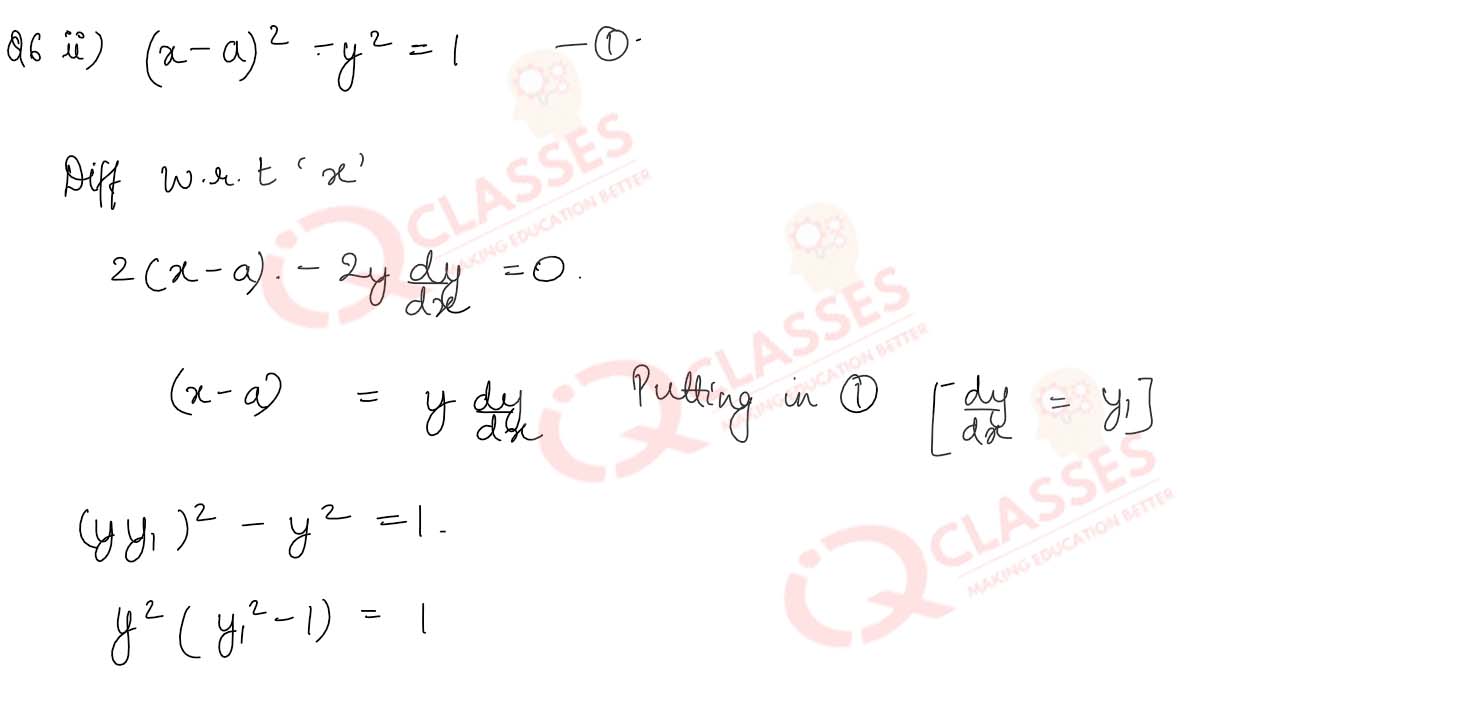 Q6 ii) (x-a)² - y² = 1 — ①.
Diff w.r.t 'x'
2(x-a). - 2y dy/dx = 0.
(x-a) = y dy/dx Putting in ① [dy/dx = y₁]
(yy₁)² - y² = 1.
y²(y₁² - 1) = 1
IQ CLASSES
MAKING EDUCATION BETTER
IQ CLASSES
MAKING EDUCATION BETTER
IQ CLASSES
MAKING EDUCATION BETTER